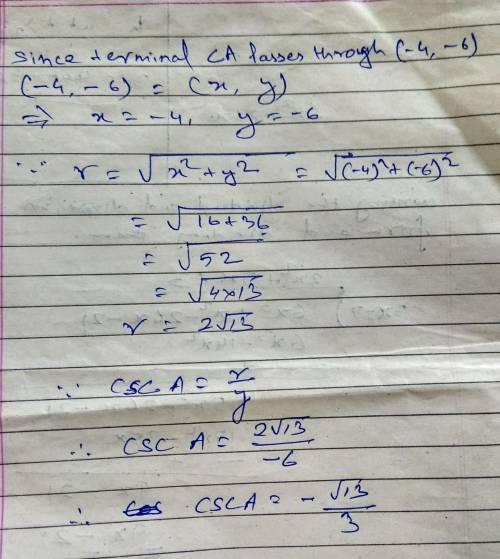 Since terminal CA passes through (-4, -6)
(-4, -6) = (x, y)
⇒ x = -4, y = -6
∵ r = √(x² + y²) = √((-4)² + (-6)²)
= √(16+36)
= √52
= √(4×13)
r = 2√13
∵ CSC A = r/y
∴ CSC A = 2√13/-6
∴ CSCA = - √13/3